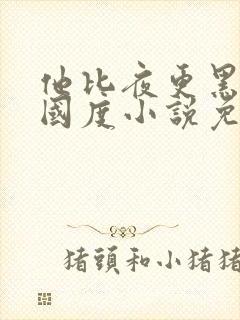 他比夜更黑
國度小說免
猪頭和小猪猪